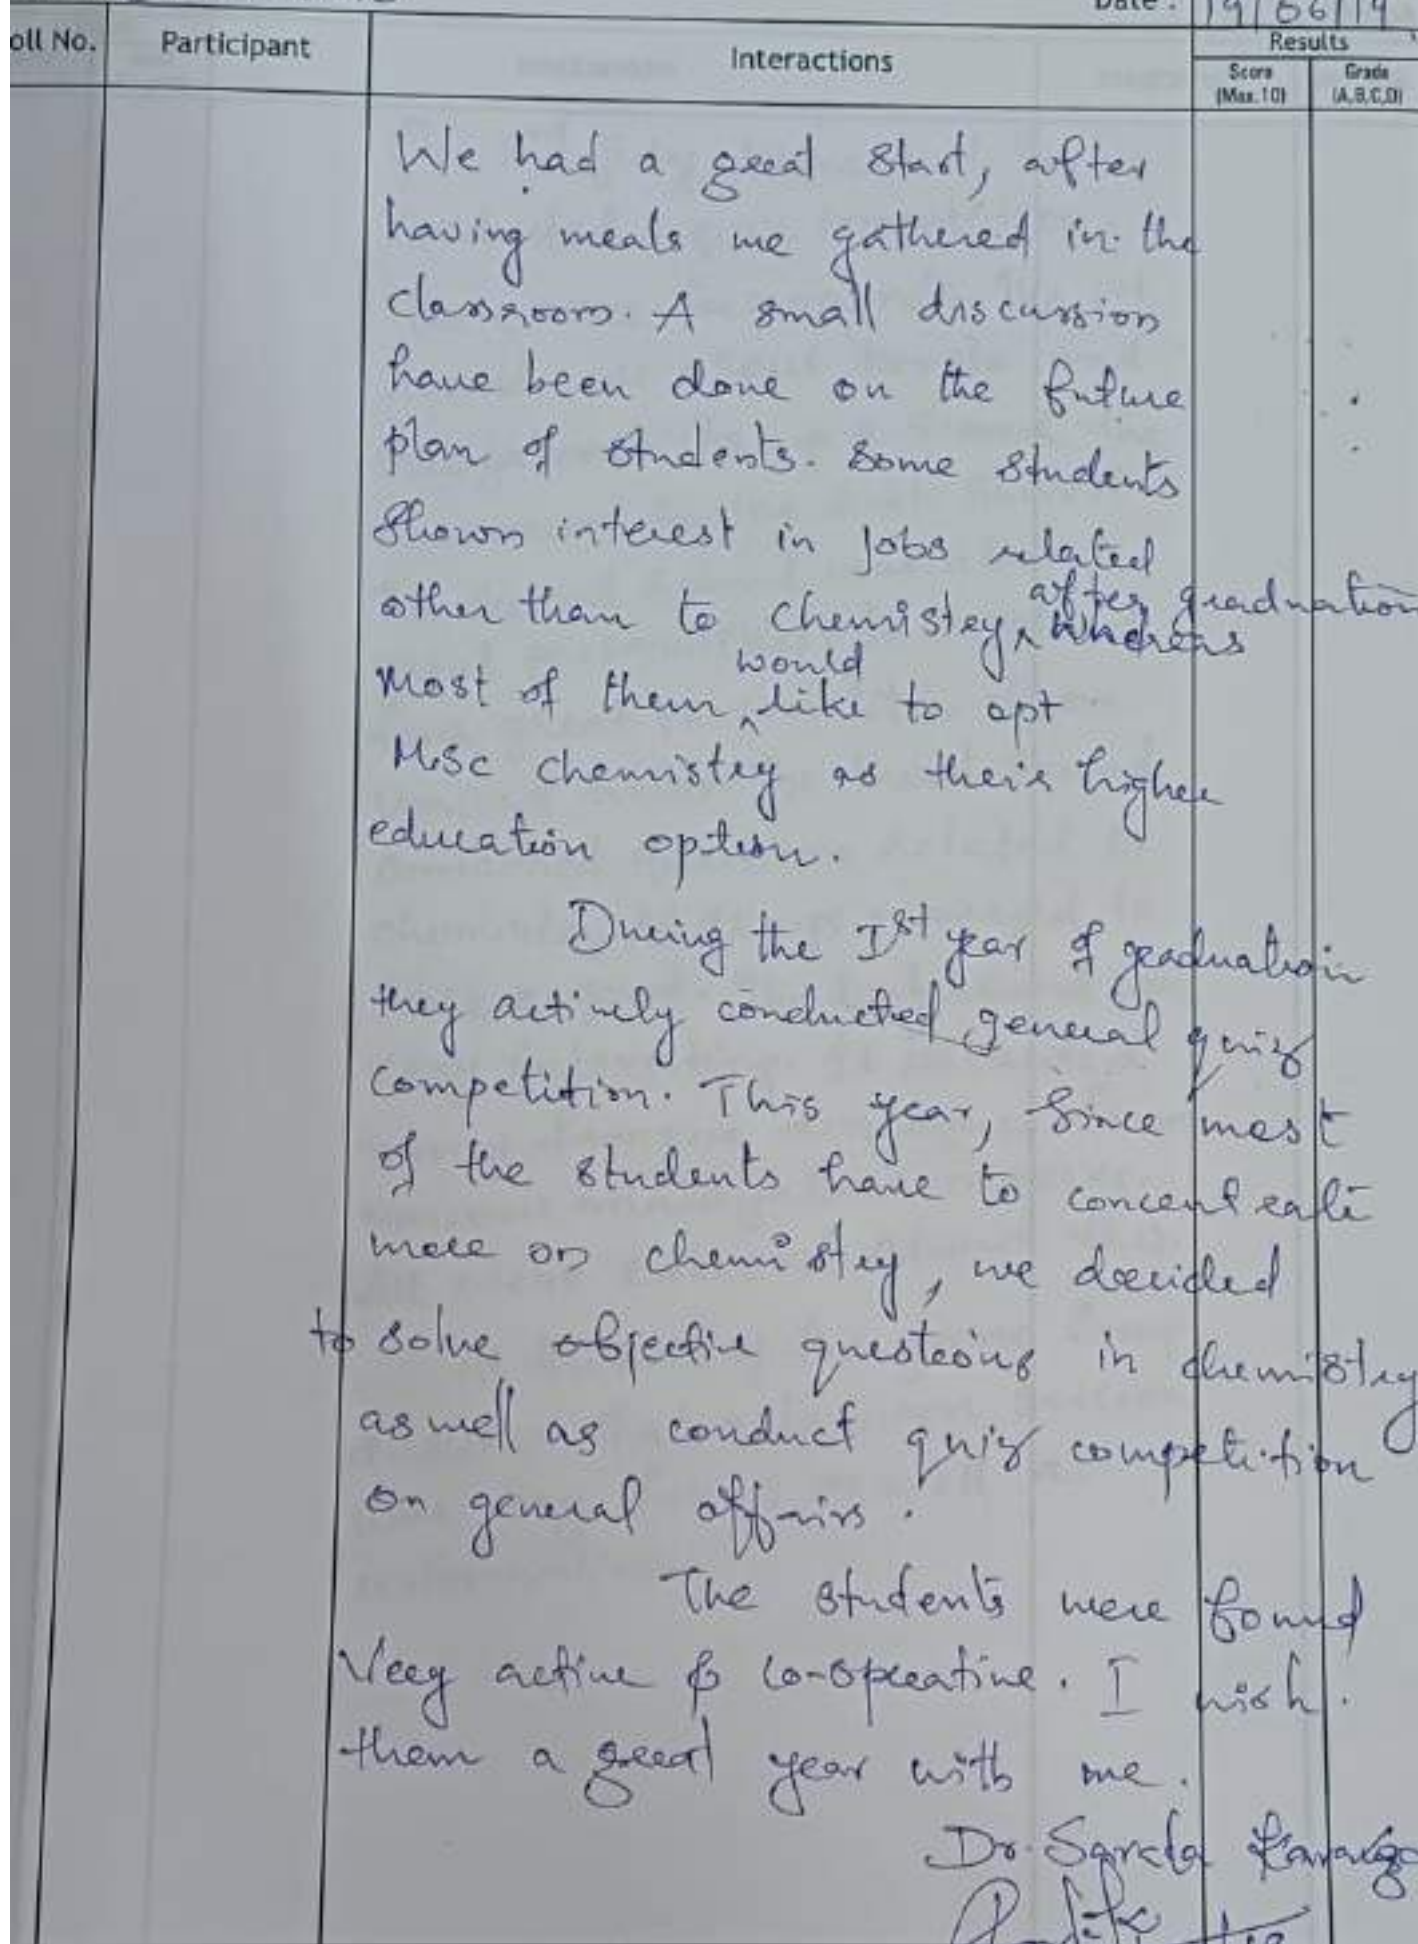 Date : 19/06/19
oll No. Participant Interactions Results
Score (Max.10) Grade (A,B,C,D)
We had a great start, after
having meals we gathered in the
classroom. A small discussion
have been done on the future
plan of students. Some students
shown interest in jobs related
other than to chemistry, after graduation whereas
most of them would like to opt
M.Sc chemistry as their higher
education option.
During the Ist year of graduation
they actively conducted general quiz
competition. This year, since most
of the students have to concentrate
more on chemistry, we decided
to solve objective questions in chemistry
as well as conduct quiz competition
on general affairs.
The students were found
Very active & co-operative. I wish
them a great year with me.
Dr. Sarita